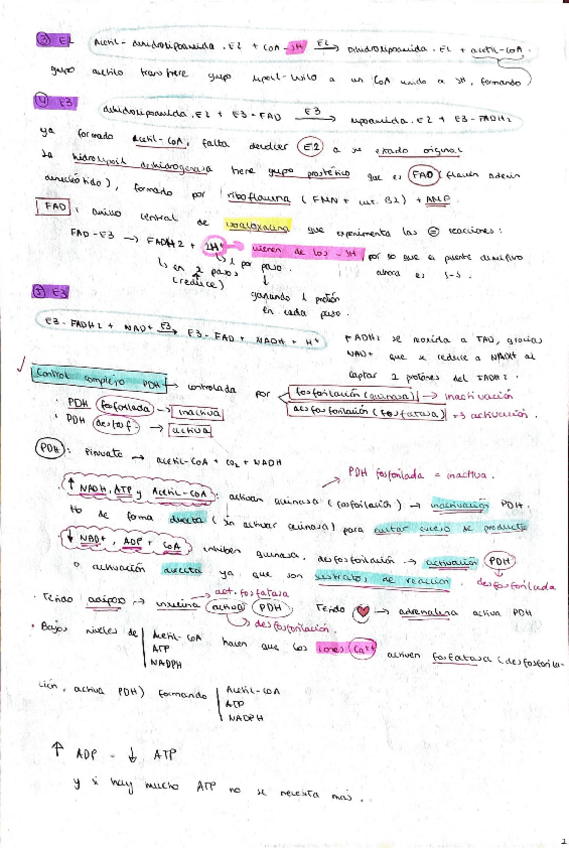 ③ E2 Acetil-dihidrolipoamida·E2 + CoA-SH →E2 Dihidrolipoamida·E2 + acetil-CoA.
grupo acetilo transfiere grupo a un CoA unido a SH, formando
④ E3 dihidrolipoamida·E2 + E3-FAD →E3 lipoamida·E2 + E3-FADH2
ya formado Acetil-CoA, falta devolver E2 a su estado original
La dihidrogenasa tiene grupo prostético que es FAD (flavin adenin
dinucleótido), formado por riboflavina (FMN + vit. B2) + AMP
FAD: anillo central de isoaloxacina que experimenta las reacciones:
FAD-E3 → FADH2 + 2H+ → vienen de los -SH por lo que el puente disulfuro
↳ en 2 pasos ↳ 1 por paso. ahora es S-S.
(reduce) ganando 1 protón
en cada paso.
⑤ E3
E3-FADH2 + NAD+ →E3 E3-FAD + NADH + H+
FADH2 se reoxida a FAD, gracias
NAD+ que se reduce a NADH al
captar 2 protones del FADH2.
✓ Control complejo PDH → controlada por fosforilación (quinasa) → inactivación
desfosforilación (fosfatasa) → activación.
· PDH fosforilada → inactiva
· PDH desfosf. → activa
PDH: Piruvato → acetil-CoA + CO2 + NADH
→ PDH fosforilada = inactiva.
↑ NADH, ATP y Acetil-CoA: activan quinasa (fosforilación) → inactivación PDH.
de forma directa (sin activar quinasa) para evitar exceso de producto
↓ NAD+, ADP + CoA inhiben quinasa, desfosforilación → activación PDH
o activación directa ya que son sustratos de reacción. desfosforilada
→ act. fosfatasa
· Tejido adiposo → insulina activa PDH Tejido ♥ → adrenalina activa PDH
→ desfosforilación.
· Bajos niveles de Acetil-CoA hacen que los iones Ca2+ activen fosfatasa (desfosforila-
ATP
NADPH
ción, activa PDH) formando Acetil-CoA
ATP
NADPH
↑ ADP - ↓ ATP
y si hay mucho ATP no se necesita más..